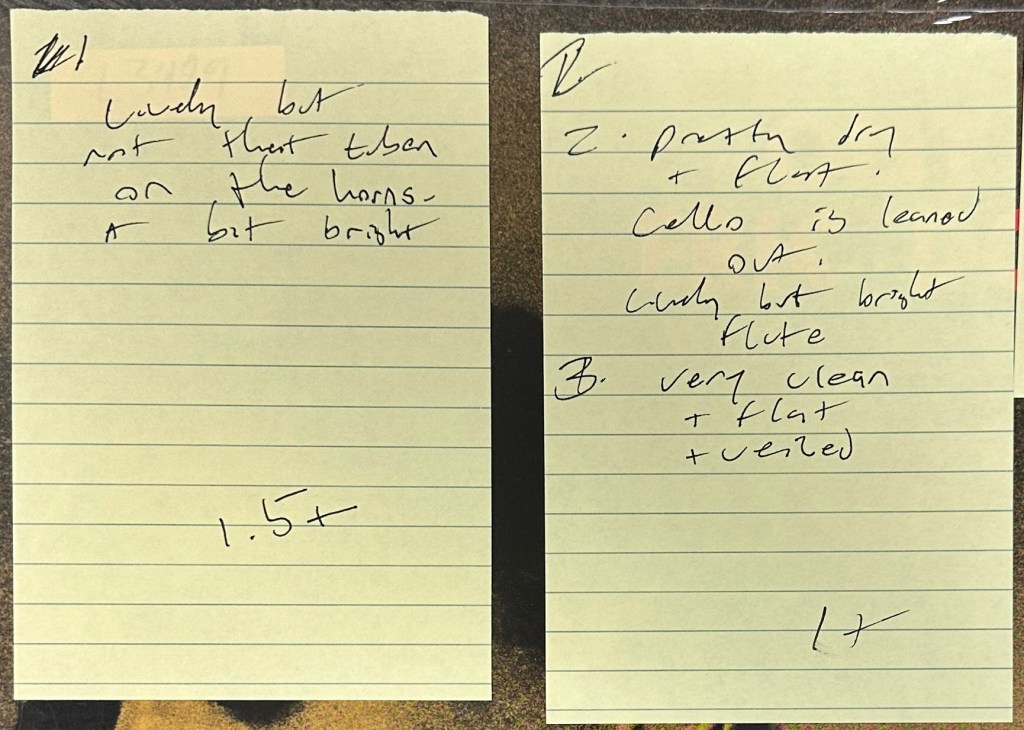 1
Lively but
not that
on the horns.
A bit bright
1.5+
2. pretty dry
+ flat.
Cello is leaned
out.
Lively but bright
flute
3. very clean
+ flat
+ veiled
1+